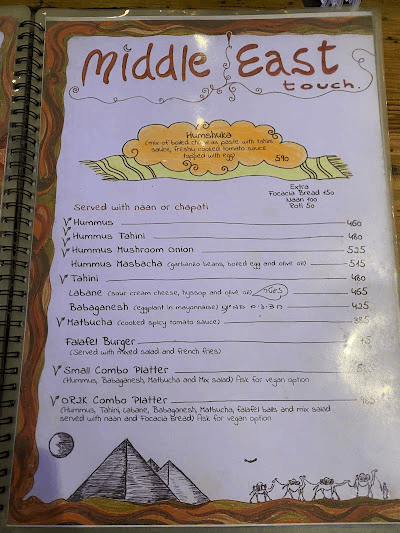 Middle East
touch.
Humshuka
(mix of boiled chickpeas paste with tahini
sauce, freshly cooked tomato sauce
topped with egg) 590
Extra
Focacia Bread 150
Naan 100
Roti 50
Served with naan or chapati
Hummus 460
Hummus Tahini 480
Hummus Mushroom Onion 525
Hummus Masbacha (garbanzo beans, boiled egg and olive oil) 515
Tahini 480
Labane (sour cream cheese, hyssop and olive oil) 465
Babaganesh (eggplant in mayonnaise) 425
Matbucha (cooked spicy tomato sauce)
Falafel Burger
(Served with mixed salad and french fries)
Small Combo Platter
(Hummus, Babaganesh, Matbucha and Mix salad) Ask for vegan option
OR2K Combo Platter
(Hummus, Tahini, Labane, Babaganesh, Matbucha, falafel balls and mix salad
served with naan and Focacia Bread) Ask for vegan option